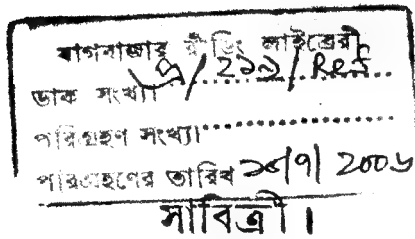 বাগবাজার রীডিং লাইব্রেরী
ডাক সংখ্যা
পরিগ্রহণ সংখ্যা
পরিগ্রহণের তারিখ 2006
সাবিত্রী।